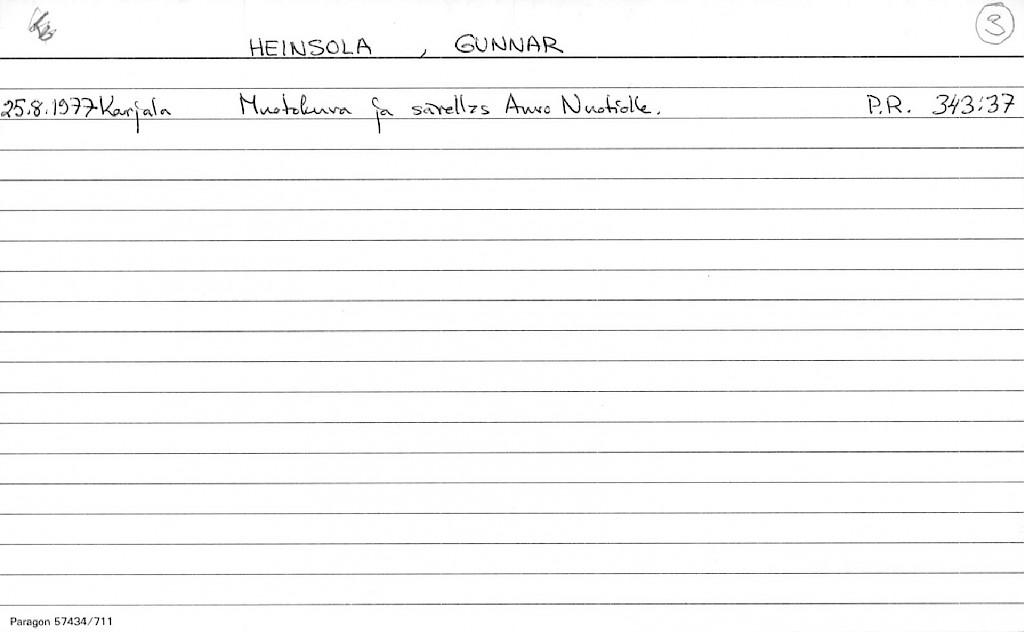 3
HEINSOLA , GUNNAR
25.8.1977 Karjala Muotokuva ja sävellys Auvo Nuotiolle. P.R. 343:37
Paragon 57434/711